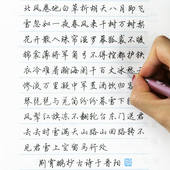 北风卷地白草折胡天八月即飞
雪忽如一夜春风来千树万树梨
花开散入珠帘湿罗幕狐裘不暖
锦衾薄将军角弓不得控都护铁
衣冷难着瀚海阑干百丈冰愁
惨淡万里凝中军置酒饮归
琴琵琶与羌笛纷纷暮雪下
风掣红旗冻不翻轮台东门送君
去去时雪满天山路山回路转不
见君雪上空留马行处
荆霄鹏抄古诗于晋阳